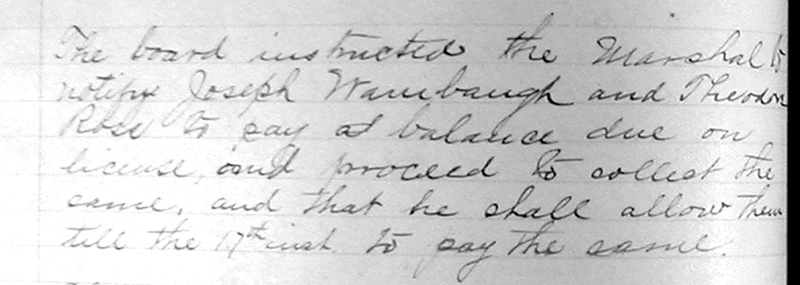 The board instructed the Marshal to
notify Joseph Wambaugh and Theodore
Rose to pay at balance due on
license, and proceed to collect the
same, and that he shall allow them
till the 17th inst. to pay the same.